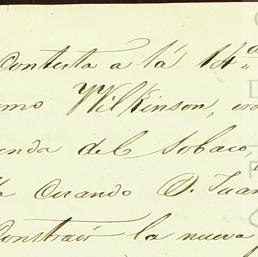 Contesta a lá 14ª
mo Wilkinson,
enda del tobaco,
Cuando D. Juan
Construió la nueva